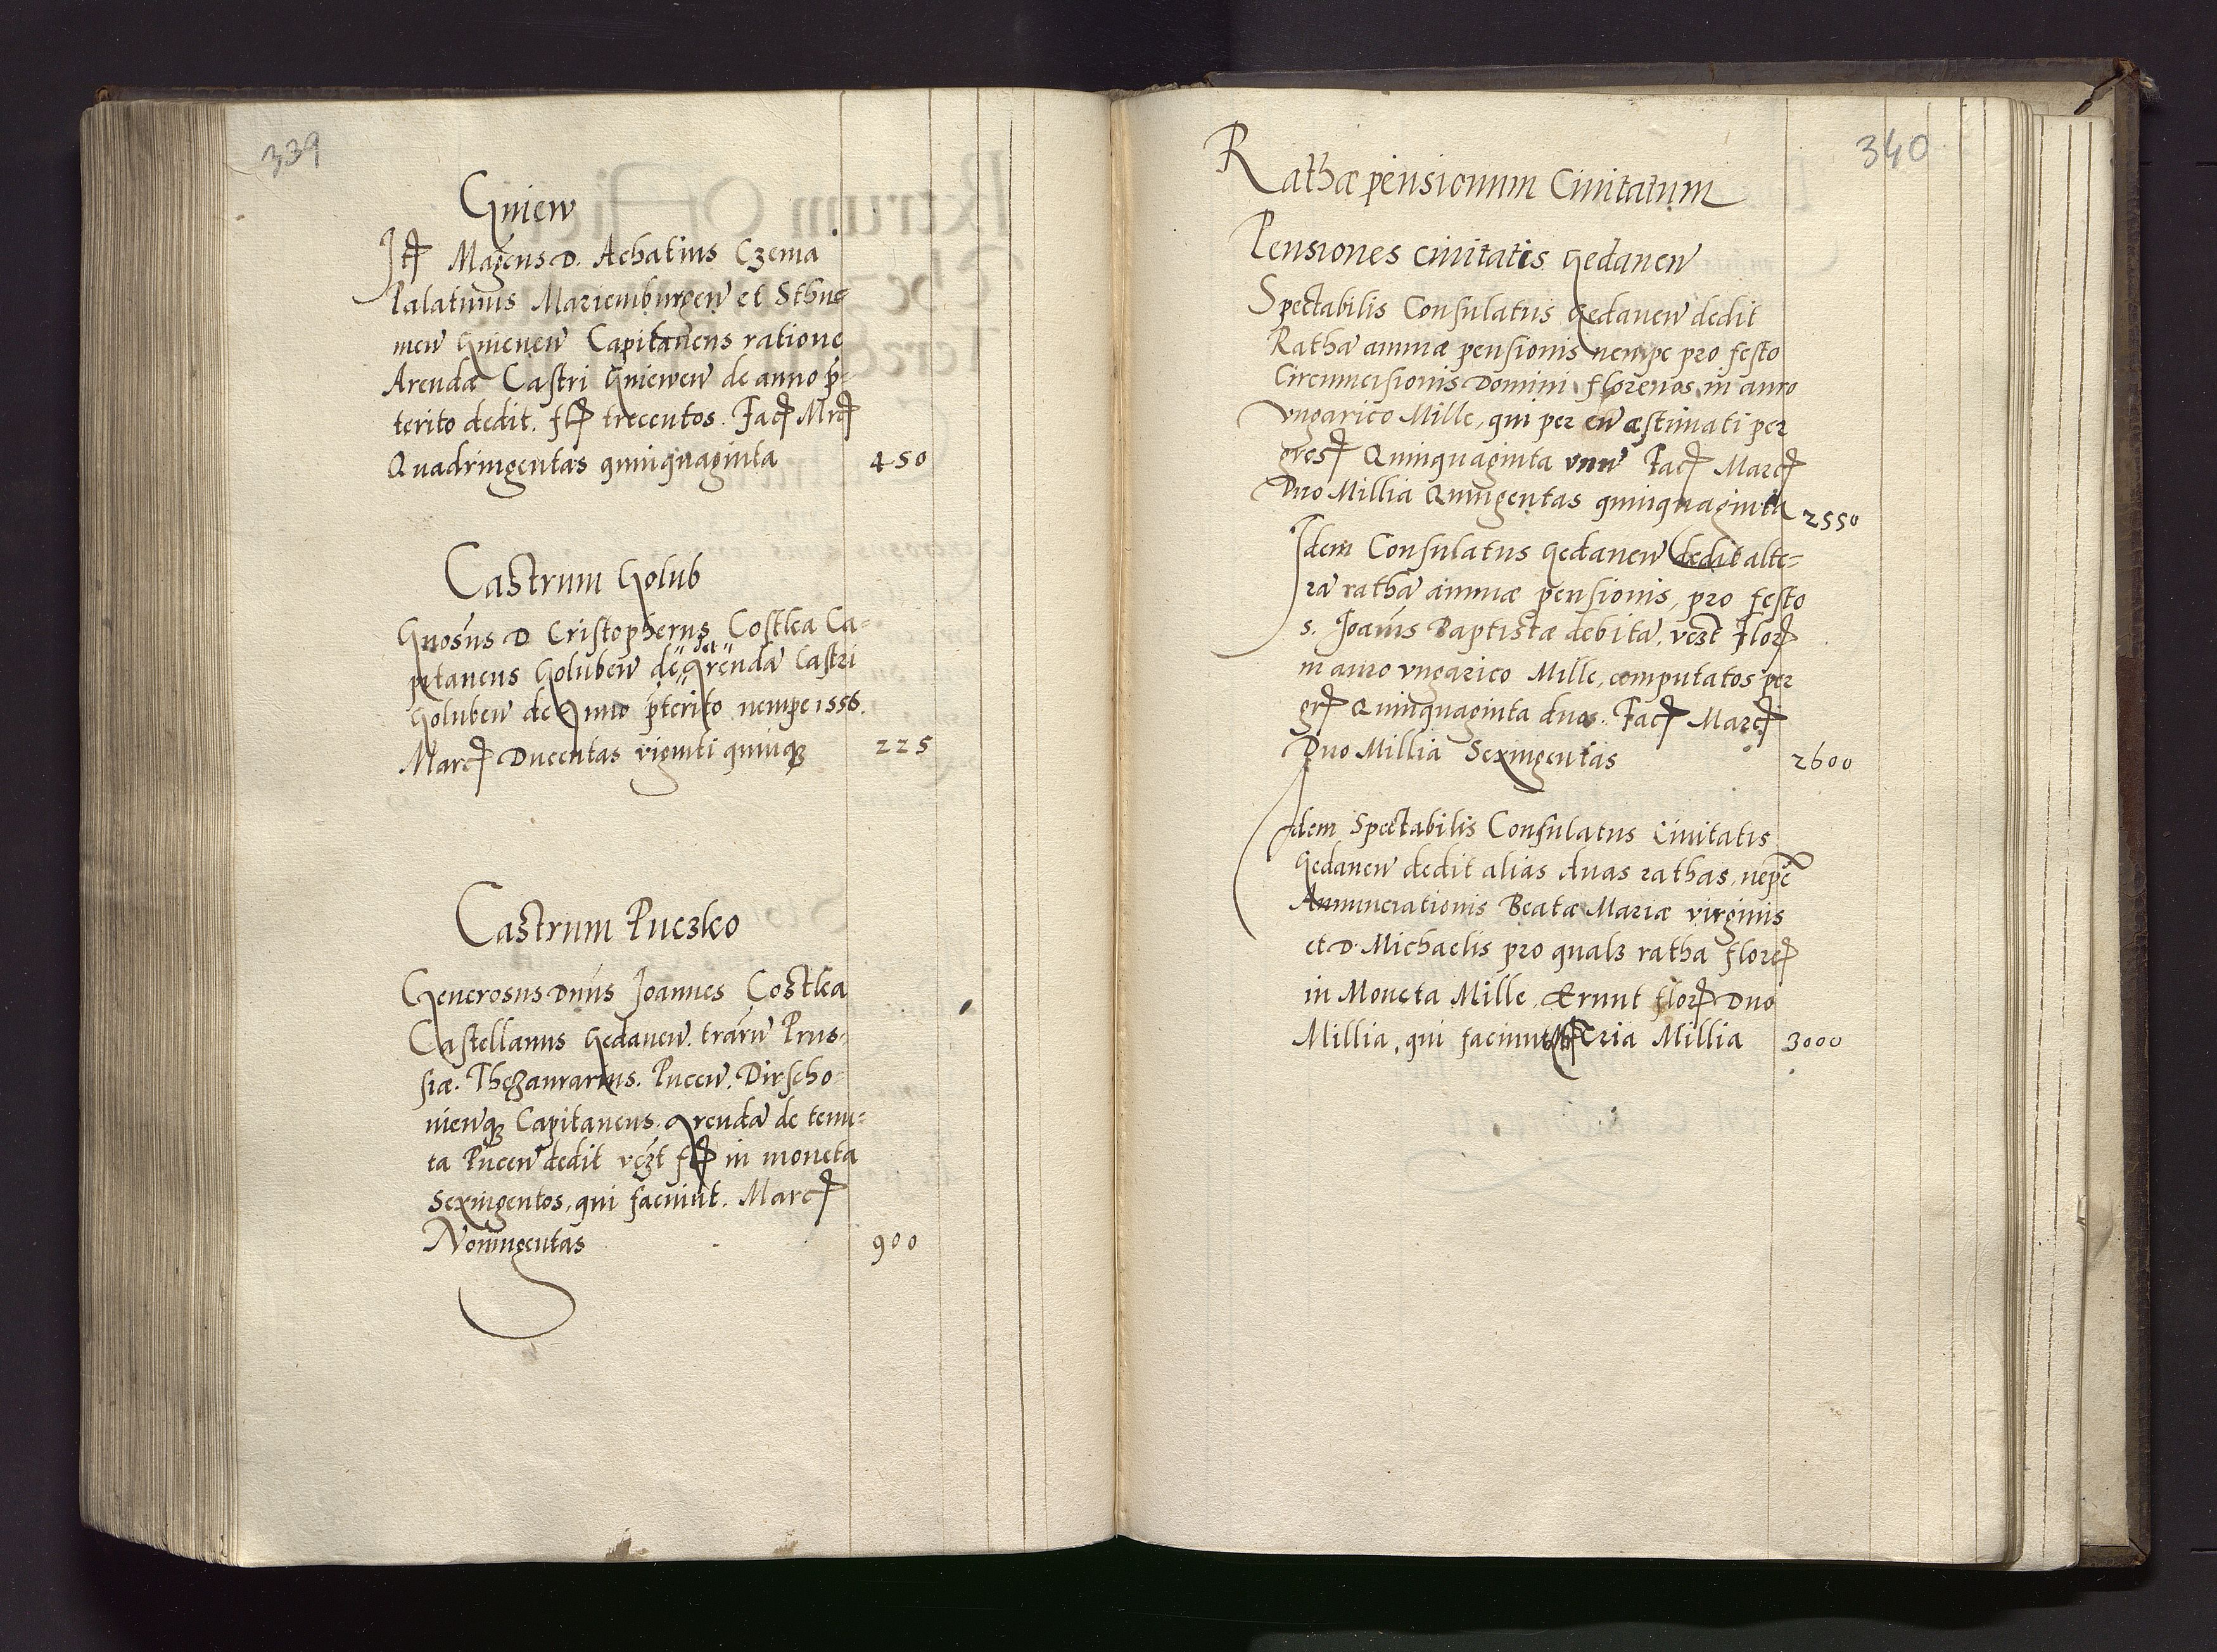 339
Gniew
Itē Magcus D. Achatius Czema
Palatinus Mariemburgeñ et Sthu=
meñ Gnieueñ Capitaneus ratione
Arendæ Castri Gnieweñ de anno p̄-
terito dedit. fl. trecentos. Fac. Mrc.
Quadringentas quinquaginta 450
Castrum Golub
Gnosus D Cristopherus Costka Ca=
pitaneus Golubeñ de Arenda Castri
Golubeñ de Anno p̄terito nempe 1556.
Marc. Ducentas viginti quinqȝ 225
Castrum Puczko
Generosus Dnūs Joannes Costka
Castellanus Gedaneñ. trārū Prus-
siæ. Thezaurarius. Puceñ. Dirscho-
uieñqȝ Capitaneus. Arendā de tenu=
ta Puceñ dedit vezt fl. in moneta
Sexingentos, qui faciunt. Marc.
Noningentas 900
340
Rathæ pensionum Ciuitatum
Pensiones ciuitatis Gedaneñ
Spectabilis Consulatus Gedaneñ dedit
Rathā annuæ pensionis nempe pro festo
Circumcisionis Domini florenos in auro
vngarico Mille, qui per eū æstimati per
gros. Quinquaginta vnū Fac. Marc.
Duo Millia Quingentas quinquaginta 2550
Idem Consulatus Gedaneñ dedit alte=
rā rathā annuæ pensionis, pro festo
s. Joan̄is Baptistæ debitā, vezt Flor.
in auro vngarico Mille, computatos per
gr. Quinquaginta duos. Fac. Marc.
Duo Millia Sexingentas 2600
Idem Spectabilis Consulatus Ciuitatis
Gedaneñ dedit alias duas rathas, nēpe
Annunciationis Beatæ Mariæ virginis
et D. Michaelis pro qualȝ ratha flore.
in Moneta Mille, Erunt flor. Duo
Millia, qui faciunt Tria Millia 3000